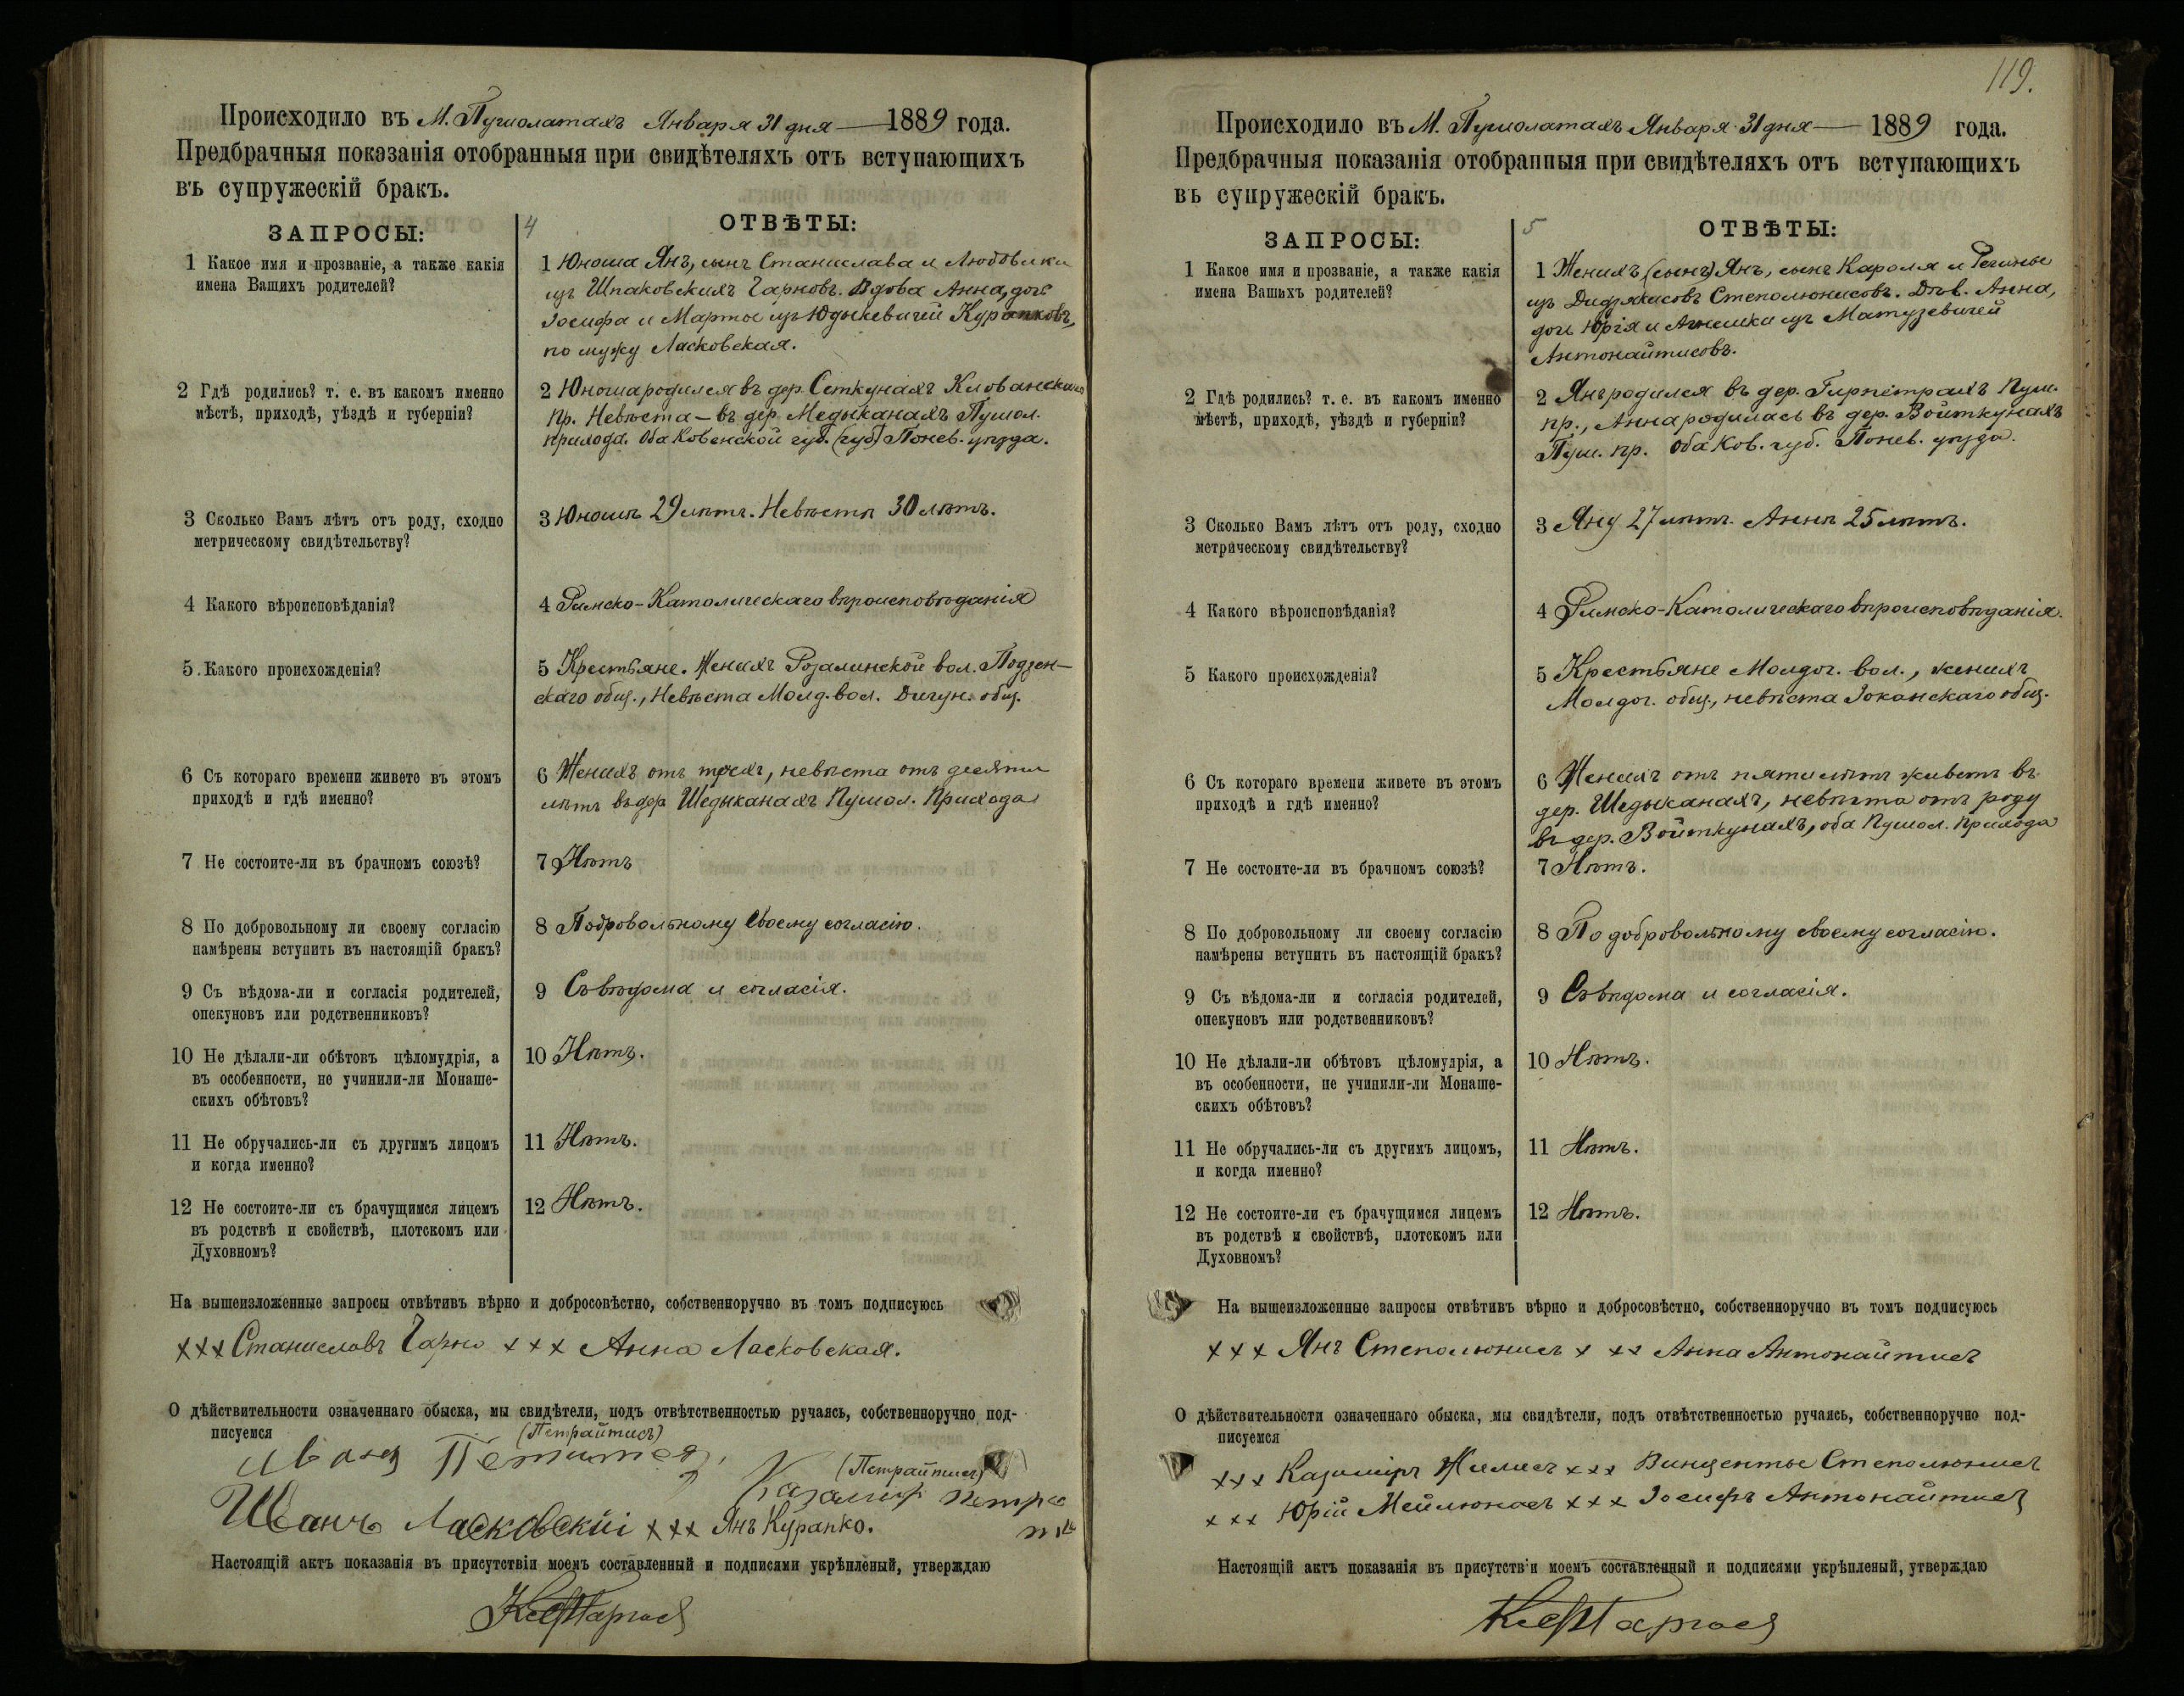 Происходило въ М. Пушолатахъ Января 31 дня — 1889 года.
Предбрачныя показанія отобранныя при свидѣтеляхъ отъ вступающихъ
въ супружескій бракъ.
ЗАПРОСЫ:
4
ОТВѢТЫ:
1 Какое имя и прозваніе, а также какія
имена Вашихъ родителей?
1 Юноша Янъ, сынъ Станислава и Людовики
изъ Шпаковскихъ Гарновъ. Вдова Анна, дочь
Іосифа и Марты изъ Юдыкевичей Куранковъ,
по мужу Ласковская.
2 Гдѣ родились? т. е. въ какомъ именно
мѣстѣ, приходѣ, уѣздѣ и губерніи?
2 Юноша родился въ дер. Сеткунахъ Кловансkаго
пр. Невѣста — въ дер. Медыканахъ Пушол.
прихода. Оба Ковенской губ. (губ) Понев. уѣзда.
3 Сколько Вамъ лѣтъ отъ роду, сходно
метрическому свидѣтельству?
3 Юношѣ 29 лѣтъ. Невѣстѣ 30 лѣтъ.
4 Какого вѣроисповѣданія?
4 Римско-Католическаго вѣроисповѣданія
5. Какого происхожденія?
5 Крестьяне. Женихъ Розалинской вол. Подзен-
скаго общ., Невѣста Молд. вол. Дигун. общ.
6 Съ котораго времени живете въ этомъ
приходѣ и гдѣ именно?
6 Женихъ отъ трехъ, невѣста отъ десяти
лѣтъ въ дер. Шедыканахъ Пушол. Прихода
7 Не состоите-ли въ брачномъ союзѣ?
7 Нѣтъ
8 По добровольному ли своему согласію
намѣрены вступить въ настоящій бракъ?
8 Подровольному своему согласію.
9 Съ вѣдома-ли и согласія родителей,
опекуновъ или родственниковъ?
9 Съ вѣдома и согласія.
10 Не дѣлали-ли обѣтовъ цѣломудрія, а
въ особенности, не учинили-ли Монаше-
скихъ обѣтовъ?
10 Нѣтъ.
11 Не обручались-ли съ другимъ лицомъ
и когда именно?
11 Нѣтъ.
12 Не состоите-ли съ брачущимся лицемъ
въ родствѣ и свойствѣ, плотскомъ или
Духовномъ?
12 Нѣтъ.
На вышеизложенные запросы отвѣтивъ вѣрно и добросовѣстно, собственноручно въ томъ подписуюсь
××× Станиславъ Гарно ××× Анна Ласковская.
О дѣйствительности означеннаго обыска, мы свидѣтели, подъ отвѣтственностью ручаясь, собственноручно под-
писуемся
(Петрайтисъ)
(Петрайтисъ)
Ласковскій ××× Янъ Куранко.
Настоящій актъ показанія въ присутствіи моемъ составленный и подписями укрѣпленый, утверждаю
119.
Происходило въ М. Пушолатахъ Января 31 дня — 1889 года.
Предбрачныя показанія отобранныя при свидѣтеляхъ отъ вступающихъ
въ супружескій бракъ.
ЗАПРОСЫ:
5
ОТВѢТЫ:
1 Какое имя и прозваніе, а также какія
имена Вашихъ родителей?
1 Женихъ (сынъ) Янъ, сынъ Кароля и Регины
изъ Дидзякисовъ Степолюнисовъ. Дѣв. Анна,
дочь Юрія и Агнешки изъ Матузевичей
Антонайтисовъ.
2 Гдѣ родились? т. е. въ какомъ именно
мѣстѣ, приходѣ, уѣздѣ и губерніи?
2 Янъ родился въ дер. Гирнетрахъ Пуш.
пр., Анна родилась въ дер. Войткунахъ
Пуш. пр. Оба Ков. губ. Понев. уѣзда.
3 Сколько Вамъ лѣтъ отъ роду, сходно
метрическому свидѣтельству?
3 Яну 27 лѣтъ. Аннѣ 25 лѣтъ.
4 Какого вѣроисповѣданія?
4 Римско-Католическаго вѣроисповѣданія.
5 Какого происхожденія?
5 Крестьяне Молдог. вол., женихъ
Молдог. общ., невѣста Іоканскаго общ.
6 Съ котораго времени живете въ этомъ
приходѣ и гдѣ именно?
6 Женихъ отъ пяти лѣтъ живетъ въ
дер. Шедыканахъ, невѣста отъ роду
въ дер. Войткунахъ, оба Пушол. прихода
7 Не состоите-ли въ брачномъ союзѣ?
7 Нѣтъ.
8 По добровольному ли своему согласію
намѣрены вступить въ настоящій бракъ?
8 По добровольному своему согласію.
9 Съ вѣдома-ли и согласія родителей,
опекуновъ или родственниковъ?
9 Съ вѣдома и согласія.
10 Не дѣлали-ли обѣтовъ цѣломудрія, а
въ особенности, не учинили-ли Монаше-
скихъ обѣтовъ?
10 Нѣтъ.
11 Не обручались-ли съ другимъ лицомъ,
и когда именно?
11 Нѣтъ.
12 Не состоите-ли съ брачущимся лицемъ
въ родствѣ и свойствѣ, плотскомъ или
Духовномъ?
12 Нѣтъ.
На вышеизложенные запросы отвѣтивъ вѣрно и добросовѣстно, собственноручно въ томъ подписуюсь
××× Янъ Степолюнисъ ××× Анна Антонайтисъ
О дѣйствительности означеннаго обыска, мы свидѣтели, подъ отвѣтственностью ручаясь, собственноручно под-
писуемся
××× Казиміръ Жилисъ ××× Винцентъ Степолюнисъ
××× Юрій Мейлюнасъ ××× Іосифъ Антонайтисъ
Настоящій актъ показанія въ присутствіи моемъ составленный и подписями укрѣпленый, утверждаю